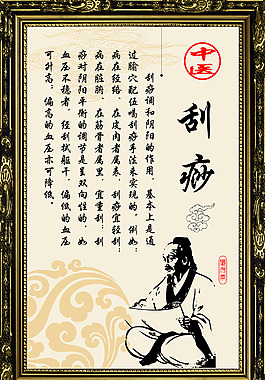 中医
刮痧
刮痧调和阴阳的作用，基本上是通
过腧穴配伍喝刮痧手法来实现的，例如；
病在经络、在皮肉者属表，刮痧宜轻刮；
病在脏腑、在筋骨者属里，宜重刮；刮
痧对阴阳平衡的调节是呈双向性的，如
血压不稳者，经刮拭躯干，偏低的血压
可升高；偏高的血压亦可降低。